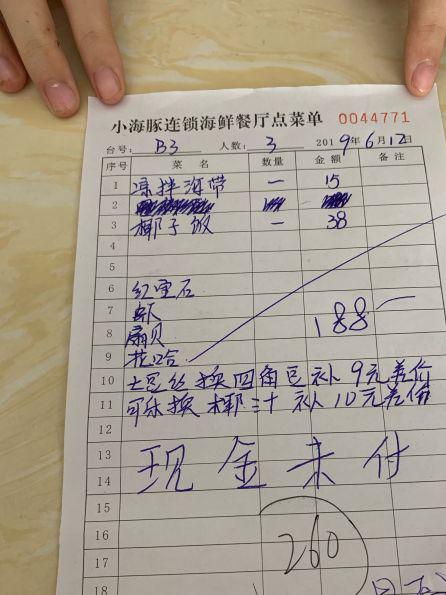 小海豚连锁海鲜餐厅点菜单 0044771
台号: B3 人数: 3 2019年6月12日
序号 菜名 数量 金额 备注
1 凉拌海带 一 15
2
3 椰子饭 一 38
4
5
6 红宝石
7 虾
8 扇贝 188
9 花哈
10 土豆丝换四角豆补9元差价
11 可乐换椰汁补10元差价
12
13 现金未付
14
15
16 260
17
18